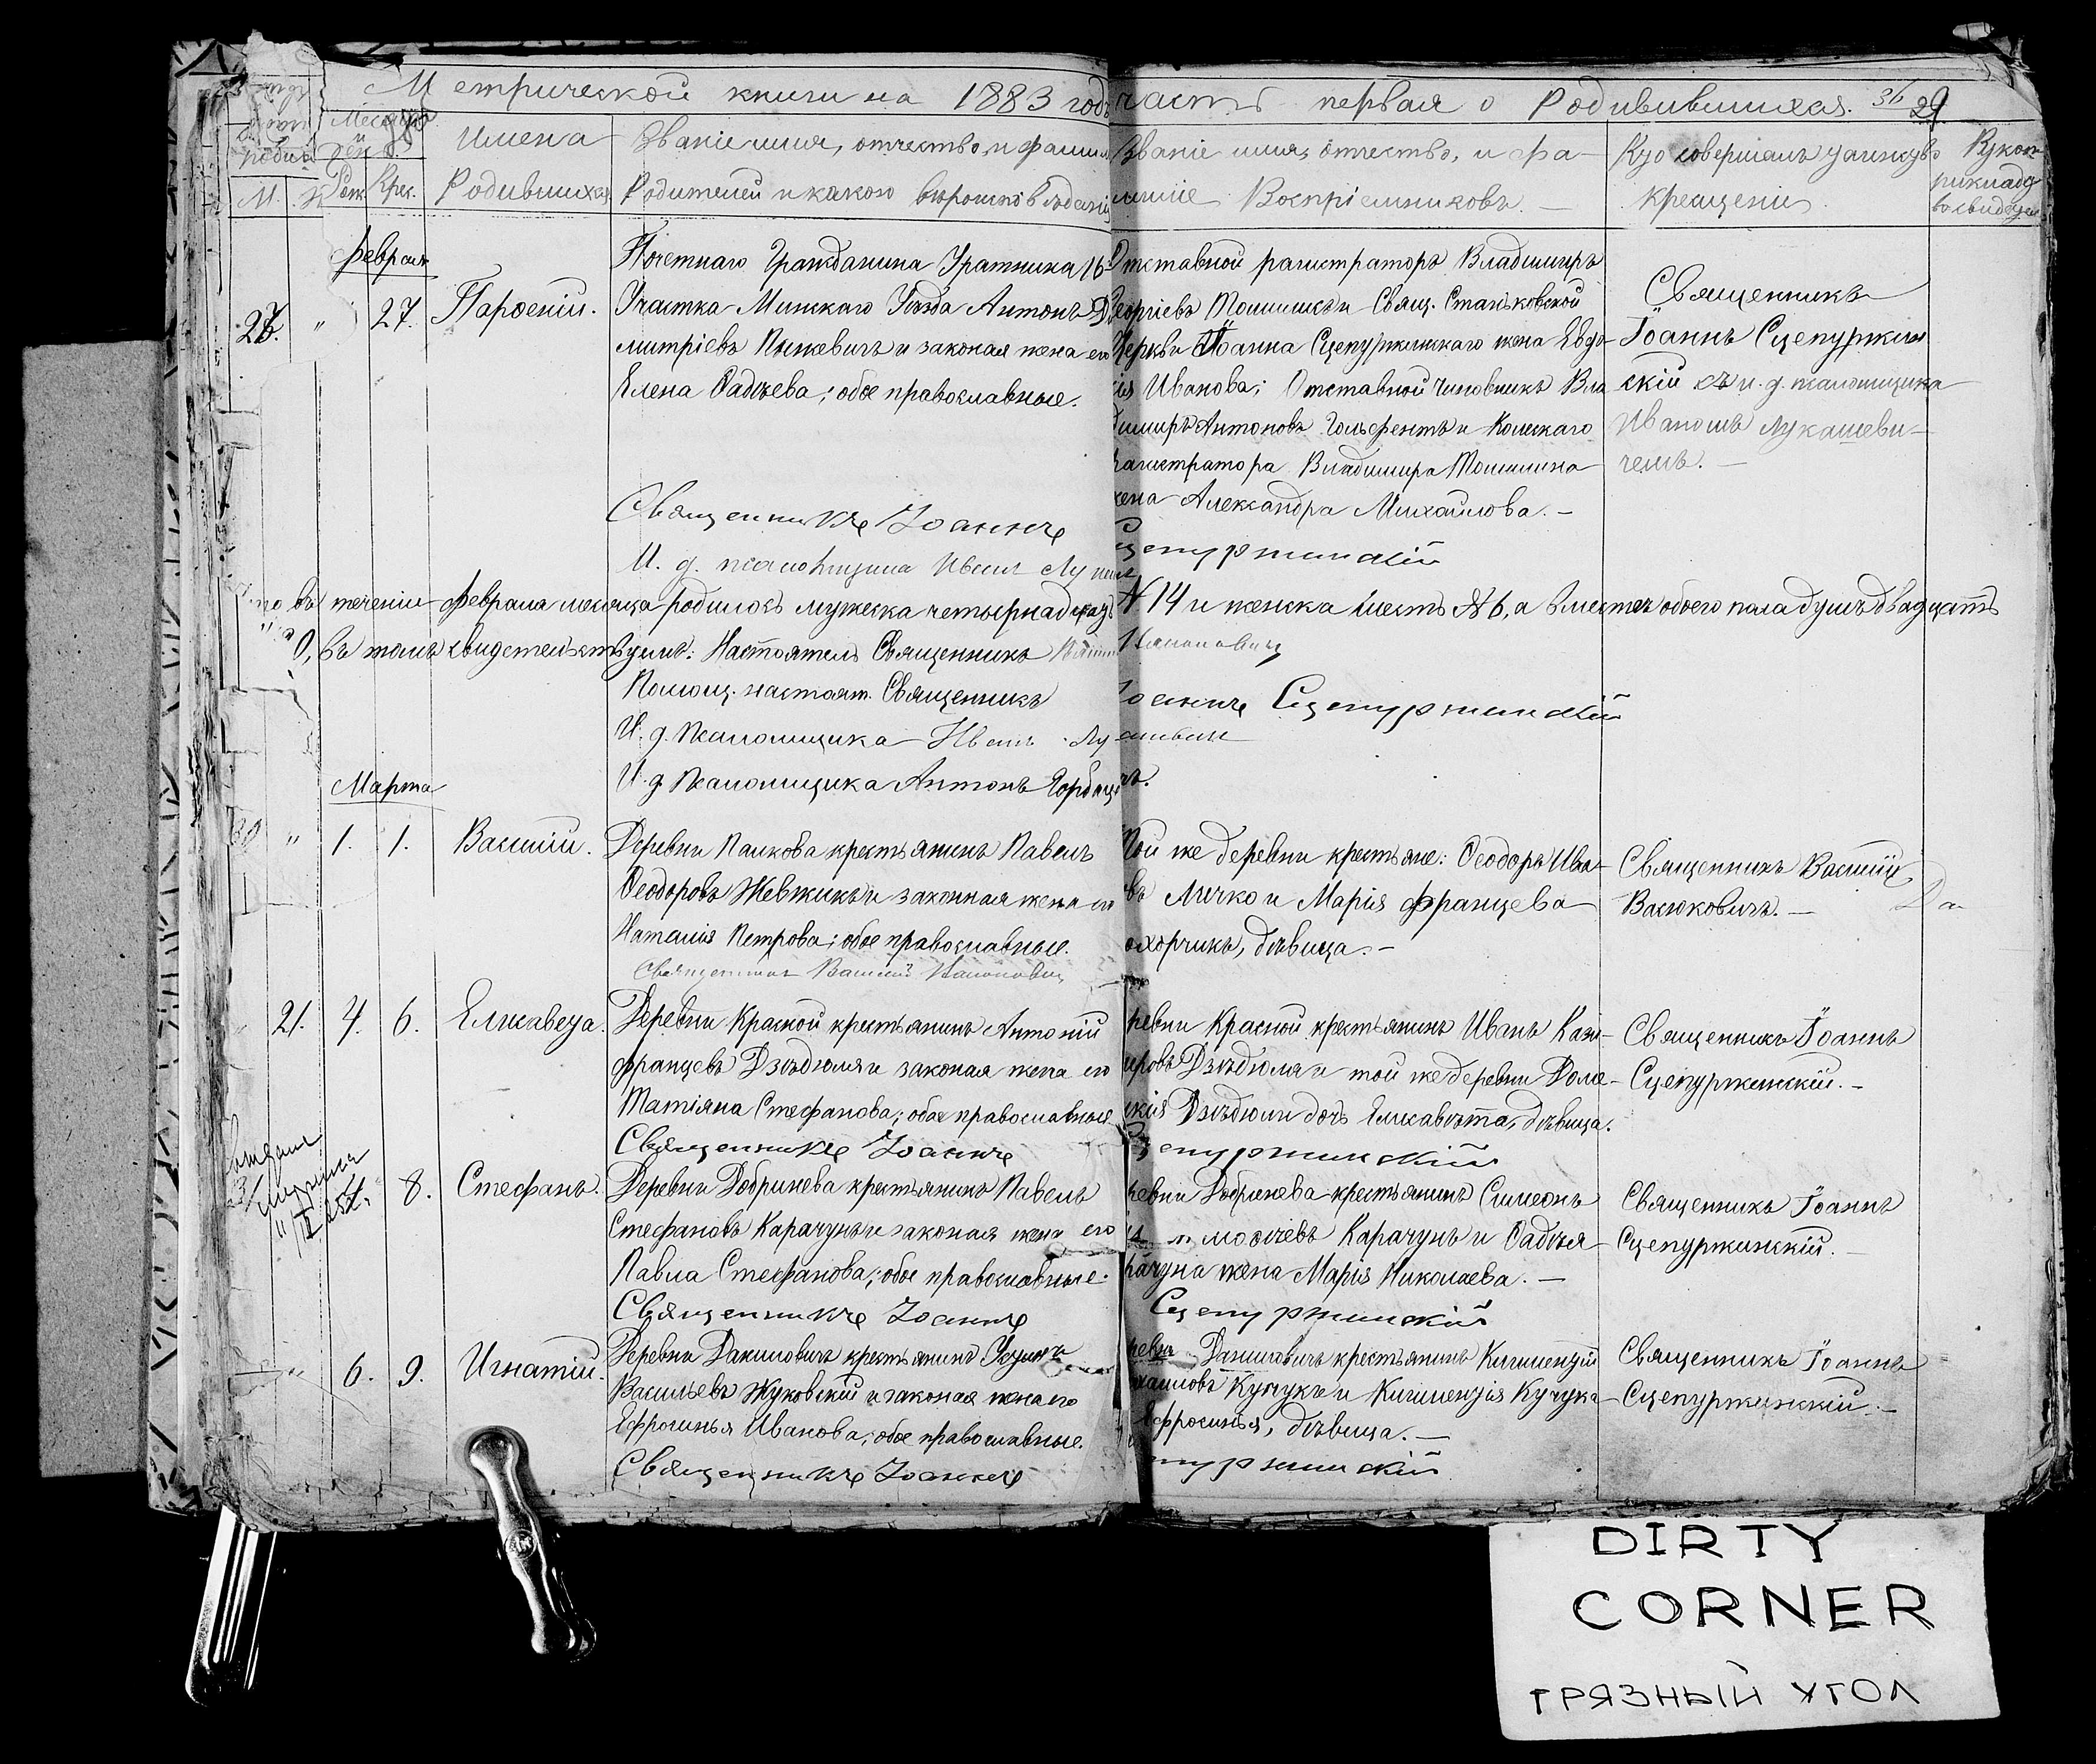 Метрической книги на 1883 годъ часть первая о Родившихся. 36 29
Месяцъ и день
М. Ж. Рож. Крес.
Имена Родившихся
Званіе имя, отчество, и фамил
Родителей и какого вѣроисповѣданія
Званіе имя, отчество, и фа-
миліе Воспріемниковъ. —
Кто совершалъ таинство
крещенія
Рукоприкладс
Февраля
27. " 27. Парѳеній.
Почетнаго Гражданина Уратника 16
Участка Минскаго Уѣзда Антонъ Д
митріевъ и законая жена его
Елена Фадѣева; обое православные.
Отставной рагистраторъ Владиміръ
Георгіевъ и Свящ. Станьковской
Церкви Іоанна Сцепуржинскаго жена Евдо-
кія Иванова; Отставной Чиновникъ Вла
диміръ Антоновъ и
рагистратора Владиміра
жена Александра Михайлова. —
Священникъ
Іоаннъ Сцепуржин
скій съ и. д. псаломщика
Иваномъ Лукашеви-
чемъ. —
Священникъ Іоаннъ Сцепуржинскій
И. д. псаломщика Иванъ
въ теченіи февраля месяца родилось мужеска четырнадцать № 14 и женска шесть № 6, а вместе обоего пола душъ двадцать
въ томъ свидетельствуемъ: Настоятель Священникъ
Помощ. настоят. Священникъ Іоаннъ Сцепуржинскій
И. д. Псаломщика Иванъ
И. д. Псаломщика Антонъ Горбацевичъ.
Марта
" 1. 1. Василій.
Деревни Панкова крестьянинъ Павелъ
Ѳеодоровъ Жевжикъ и законная жена его
Наталія Петрова; обое православные.
Той же деревни крестьяне: Ѳеодоръ Ива-
въ Личко и Марія Францева
охорчикъ, дѣвица. —
Священникъ Василій
Васюковичъ. —
Священникъ Василій
21. 4. 6. Елисавета.
Деревни Красной крестьянинъ Антоній
Францевъ Дзѣдюля и законая жена его
Татіяна Стефанова; обое православные.
ревни Красной крестьянинъ Иванъ Кази-
ировъ Дзѣдюля и той же деревни Доме-
икія Дзѣдюли дочь Елисавѣта, дѣвица.
Священникъ Іоаннъ
Сцепуржинскій. —
Священникъ Іоаннъ Сцепуржинскій
8. Стефанъ.
Деревни Добринева крестьянинъ Павелъ
Стефановъ Карачунъ и законая жена его
Павла Стефанова; обое православные.
ревни Добринева крестьянинъ Симеонъ
моѳѣевъ Карачунъ и Фадѣя
рачуна жена Марія Николаева. —
Священникъ Іоаннъ
Сцепуржинскій. —
Священникъ Іоаннъ Сцепуржинскій
" 6. 9. Игнатій.
Деревни Даниловичъ крестьянинъ Устинъ
Васильевъ Жуковскій и законая жена его
Ефросинья Иванова; обое православные.
ревни Даниловичъ крестьянинъ
хаиловъ Кучукъ и Кучука
Ефросинья, дѣвица. —
Священникъ Іоаннъ
Сцепуржинскій. —
Священникъ Іоаннъ
DIRTY
CORNER
ГРЯЗНЫЙ УГОЛ